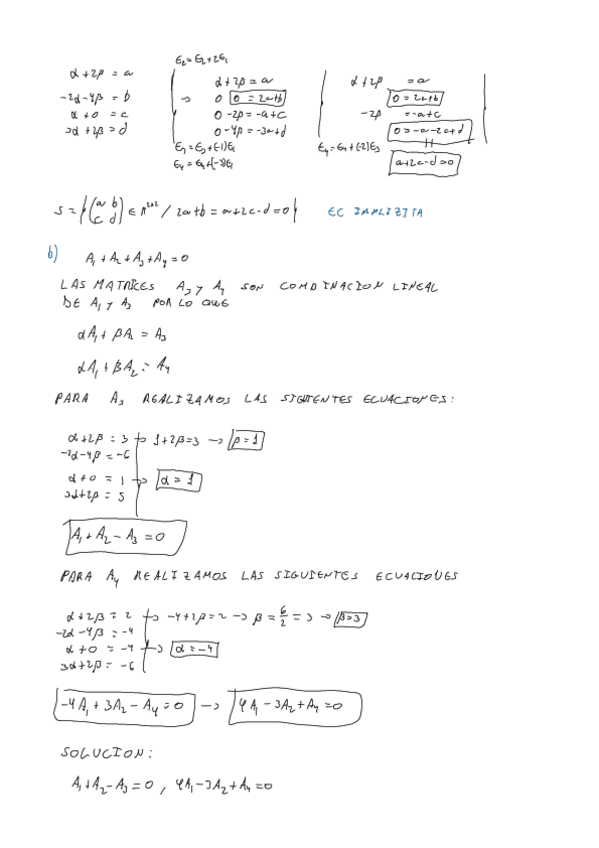 E₂=E₂+2E₁
α+2β = a
-2α-4β = b
α+0 = c
3α+2β = d
→ α+2β = a
0 0 = 2a+b
0 -2β = -a+c
0 -4β = -3a+d
E₃=E₃+(-1)E₁
E₄=E₄+(-3)E₁
α+2β = a
0 = 2a+b
-2β = -a+c
0 = -a-2c+d
E₄=E₄+(-2)E₃
a+2c-d=0
S = {(a b c d) ∈ M^{2x2} / 2a+b = a+2c-d=0} EC IMPLIZITA
b) A₁+A₂+A₃+A₄=0
LAS MATRICES A₃ y A₄ SON COMBINACION LINEAL
DE A₁ y A₃ POR LO QUE
αA₁+βA₂ = A₃
αA₁+βA₂ = A₄
PARA A₃ REALIZAMOS LAS SIGUIENTES ECUACIONES:
α+2β = 3 → 1+2β=3 → β=1
-2α-4β = -6
α+0 = 1 → α=1
3α+2β = 5
A₁+A₂-A₃=0
PARA A₄ REALIZAMOS LAS SIGUIENTES ECUACIONES
α+2β = 2 → -4+2β=2 → β=6/2=3 → β=3
-2α-4β = -4
α+0 = -4 → α=-4
3α+2β = -6
-4A₁+3A₂-A₄=0 → 4A₁-3A₂+A₄=0
SOLUCION:
A₁+A₂-A₃=0, 4A₁-3A₂+A₄=0